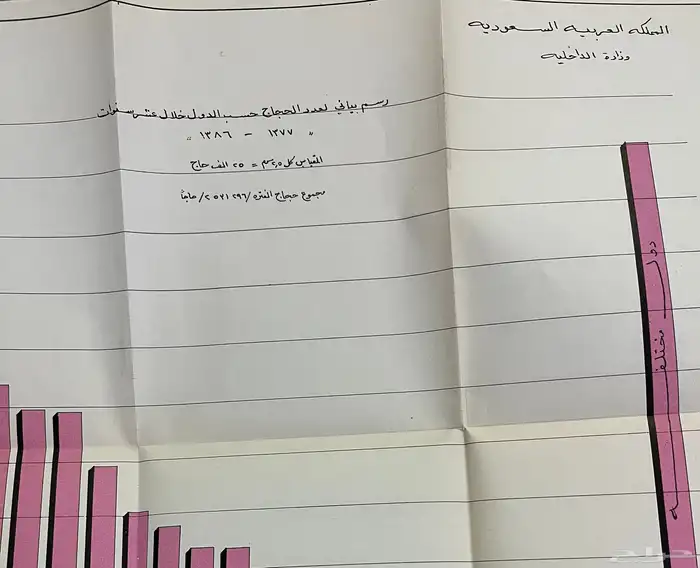 المملكه العربيه السعوديه
وزارة الداخليه
رسم بياني لعدد الحجاج حسب الدول خلال عشر سنوات
" ١٣٧٧ - ١٣٨٦ "
المقياس كل ٢٫٥ سم = ٢٥ الف حاج
مجموع حجاج الفتره /٢٥٣١٢٩٦/ حاجا
دول مختلفه
حراج